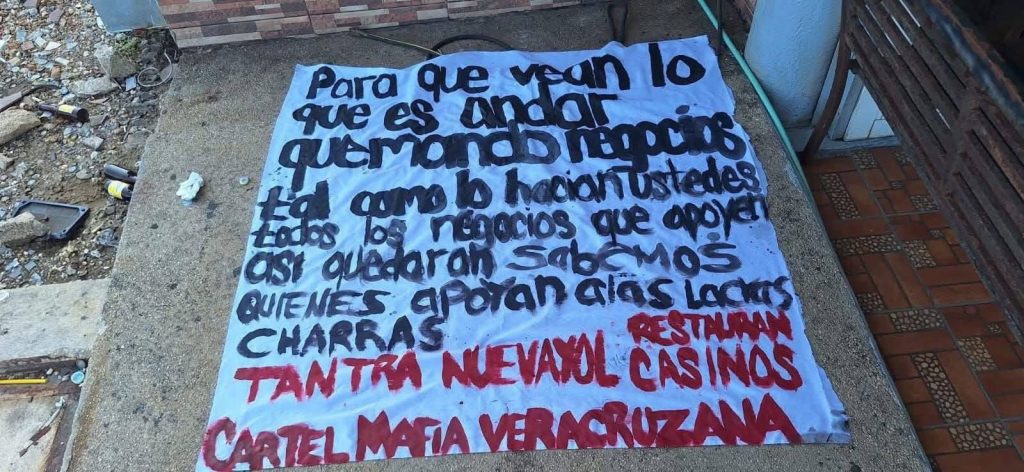 Para que vean lo
que es andar
quemando negocios
tal como lo hacian ustedes
todos los negocios que apoyen
asi quedaran SabEMOS
QUIENES apoyan alas Lacras
CHARRAS RESTAURAN
TANTRA NUEVAYOL CASINOS
CARTEL MAFIA VERACRUZANA